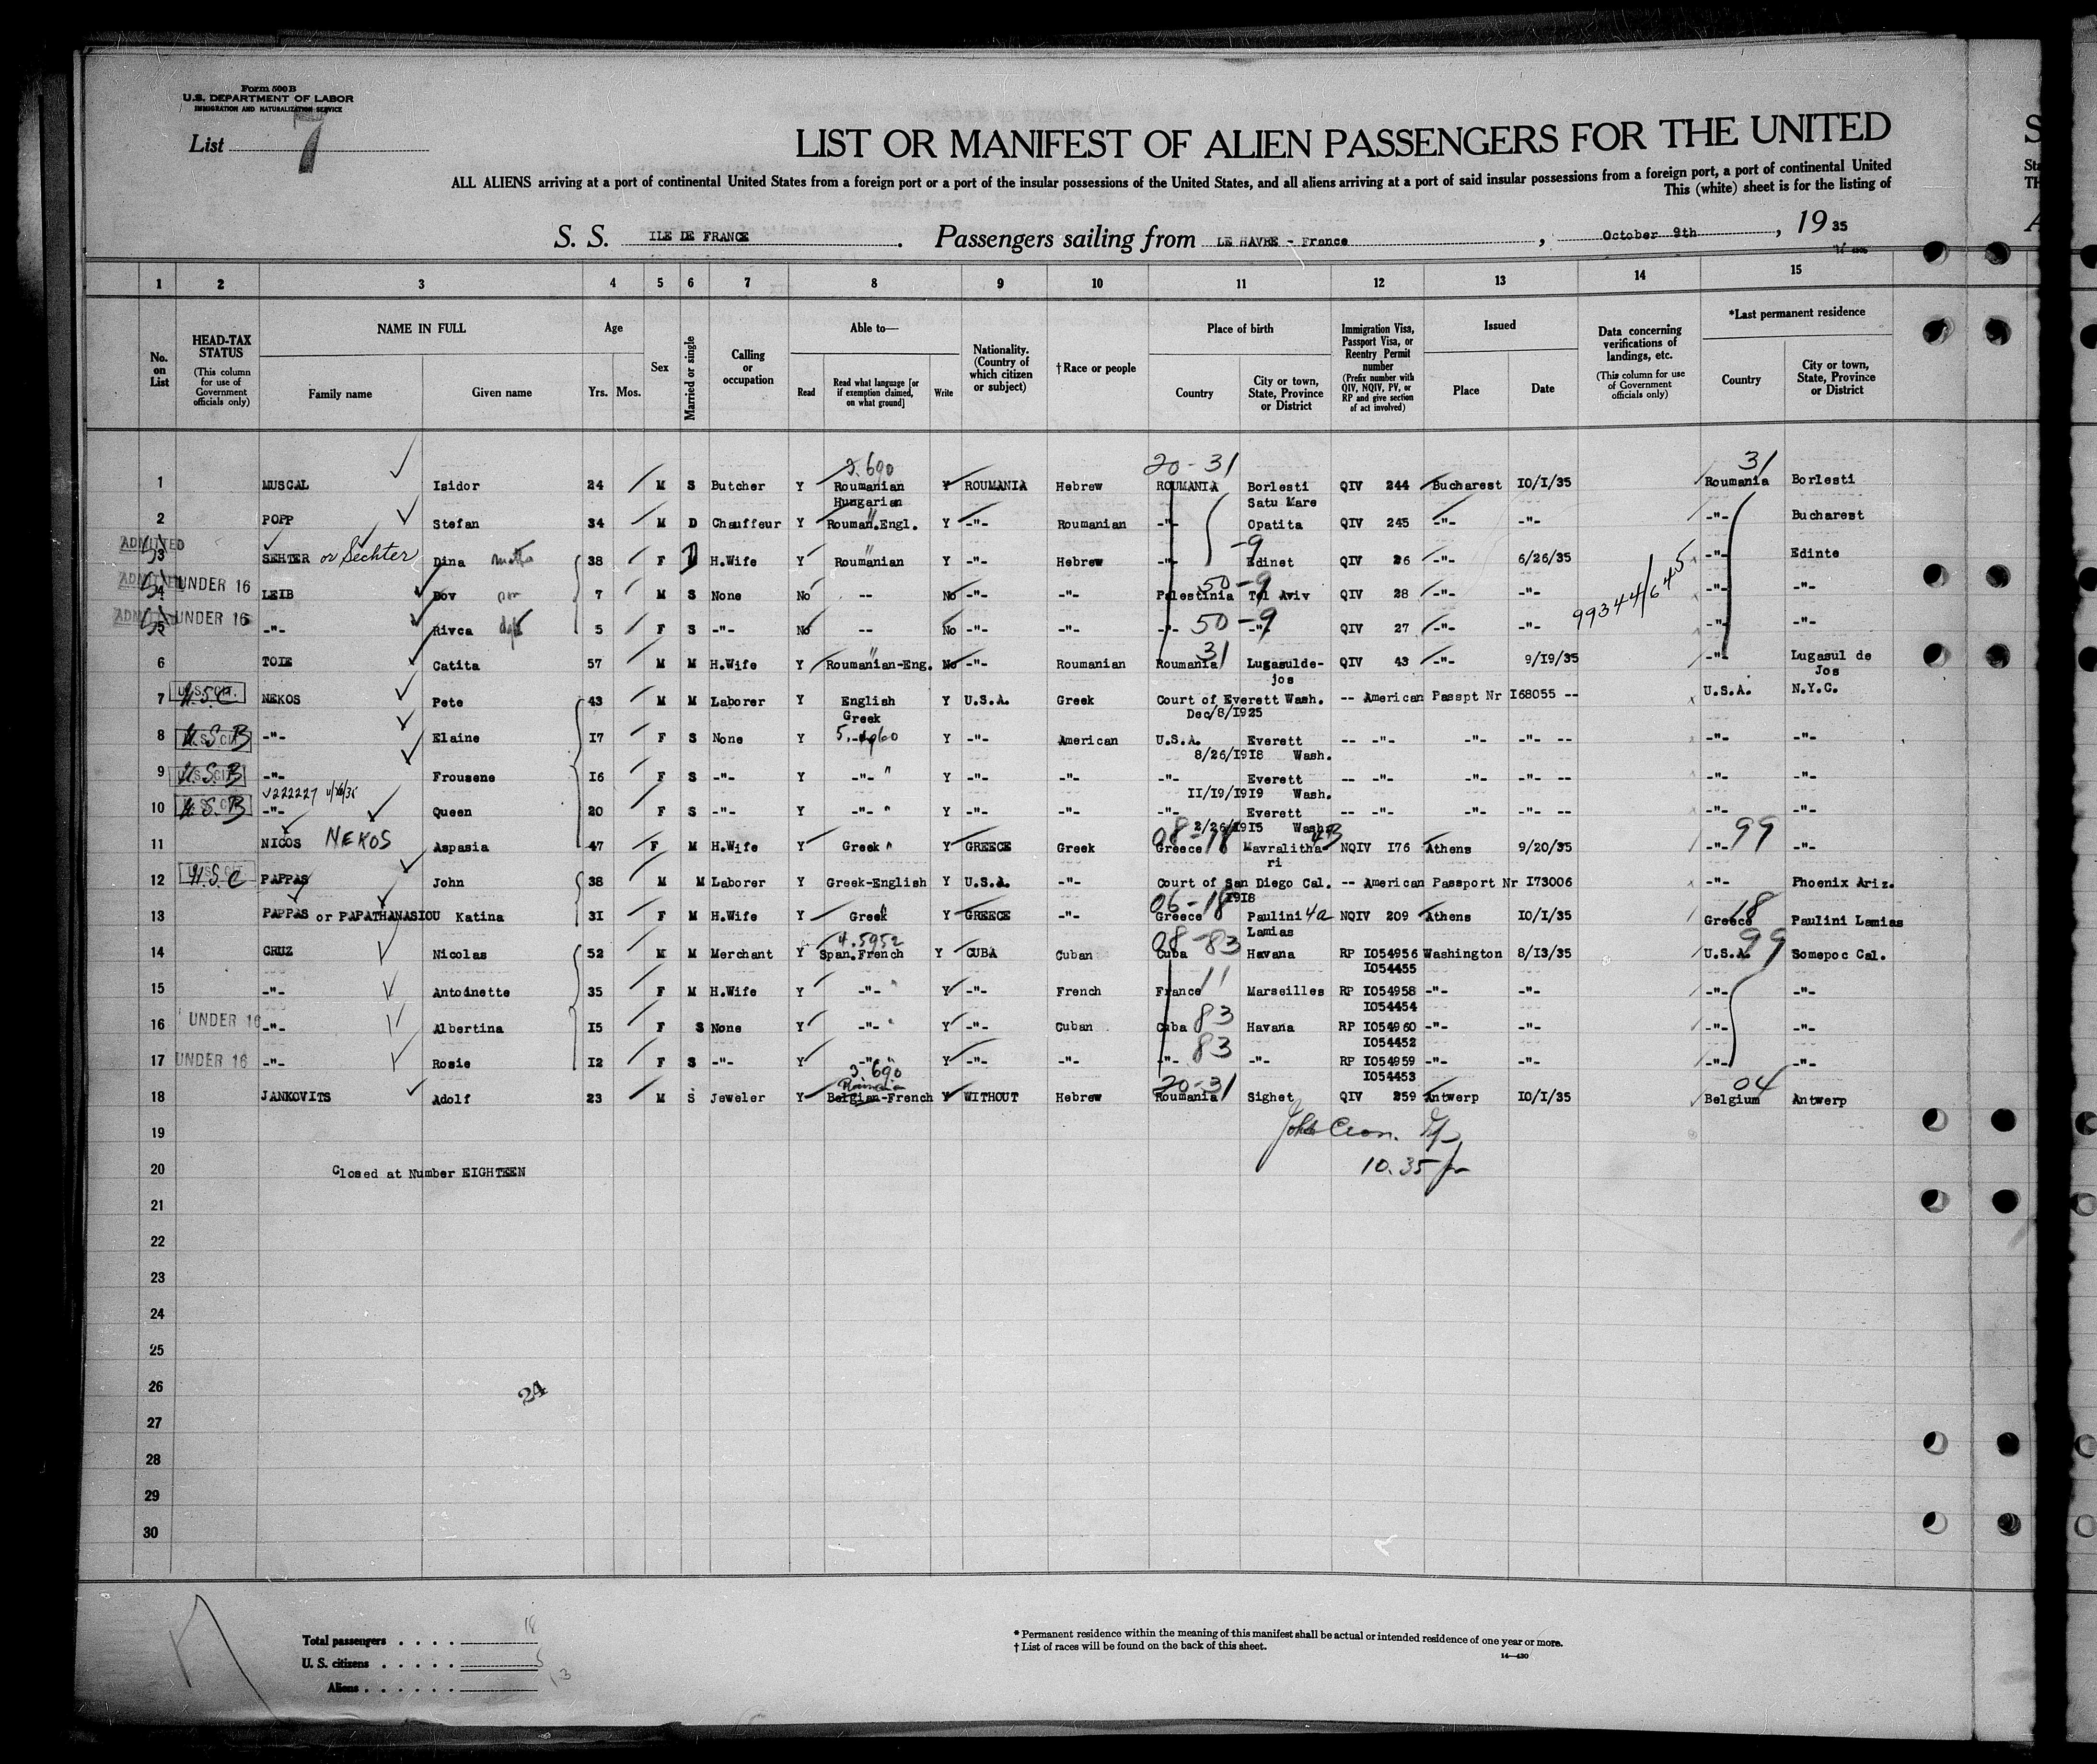 Form 500B
U.S. DEPARTMENT OF LABOR
IMMIGRATION AND NATURALIZATION SERVICE
List 7
LIST OR MANIFEST OF ALIEN PASSENGERS FOR THE UNITED
ALL ALIENS arriving at a port of continental United States from a foreign port or a port of the insular possessions of the United States, and all aliens arriving at a port of said insular possessions from a foreign port, a port of continental United
This (white) sheet is for the listing of
S. S. ILE DE FRANCE. Passengers sailing from LE HAVRE - France, October 9th, 19 35
1 2 3 4 5 6 7 8 9 10 11 12 13 14 15
No. on List
HEAD-TAX STATUS (This column for use of Government officials only)
NAME IN FULL
Family name Given name
Age
Yrs. Mos.
Sex
Married or single
Calling or occupation
Able to—
Read Read what language [or if exemption claimed, on what ground] Write
Nationality. (Country of which citizen or subject)
†Race or people
Place of birth
Country City or town, State, Province or District
Immigration Visa, Passport Visa, or Reentry Permit number (Prefix number with QIV, NQIV, PV, or RP and give section of act involved)
Issued
Place Date
Data concerning verifications of landings, etc. (This column for use of Government officials only)
*Last permanent residence
Country City or town, State, Province or District
3.690 20-31 31
1 MUSCAL Isidor 24 M S Butcher Y Roumanian Y ROUMANIA Hebrew ROUMANIA Borlesti QIV 244 Bucharest IO/I/35 Roumania Borlesti
Hungarian Satu Mare
2 POPP Stefan 34 M D Chauffeur Y Rouman.Engl. Y -"- Roumanian -"- Opatita QIV 245 -"- -"- -"- Bucharest
ADMITTED
3 SEHTER or Sechter Dina 38 F H.Wife Y Roumanian Y -"- Hebrew -"- Edinet QIV 26 -"- 6/26/35 -"- Edinte
-9
4 UNDER 16 LEIB Dov 7 M S None No -- No -"- -"- Palestinia Tel Aviv QIV 28 -"- -"- -"- -"-
50-9
5 UNDER 16 -"- Rivca 5 F S -"- No -- No -"- -"- -"- 50-9 -"- QIV 27 -"- -"- 99344/645 -"- -"-
31
6 TOIE Catita 57 M M H.Wife Y Roumanian-Eng. No -"- Roumanian Roumania Lugasulde- QIV 43 -"- 9/19/35 -"- Lugasul de
jos Jos
7 U.S. CIT. U.S.C NEKOS Pete 43 M M Laborer Y English Y U.S.A. Greek Court of Everett Wash. -- American Passpt Nr I68055 -- U.S.A. N.Y.C.
Greek Dec/8/I925
8 U.S.B -"- Elaine I7 F S None Y 5. Y -"- American U.S.A. Everett -- -"- -"- -"- -- -"- -"-
8/26/I9I8 Wash.
9 U.S.B -"- Frousene I6 F S -"- Y -"- " Y -"- -"- -"- Everett -- -"- -"- -"- -- -"- -"-
II/I9/I9I9 Wash.
10 U.S.B -"- Queen 20 F S -"- Y -"- " Y -"- -"- -"- Everett -- -"- -"- -"- -- -"- -"-
2/26/I9I5 Wash.
11 NICOS NEKOS Aspasia 47 F M H.Wife Y Greek " Y GREECE Greek Greece Mavralitha NQIV I76 Athens 9/20/35 -"- 99 -"-
ri
12 U.S.C PAPPAS John 38 M M Laborer Y Greek-English Y U.S.A. -"- Court of San Diego Cal. -- American Passport Nr I73006 -"- Phoenix Ariz.
I9I8
13 PAPPAS or PAPATHANASIOU Katina 3I F M H.Wife Y Greek Y GREECE -"- Greece Paulini 4a NQIV 209 Athens IO/I/35 Greece 18 Paulini Lamias
4.5952 08-83 Lamias
14 CRUZ Nicolas 52 M M Merchant Y Span.French Y CUBA Cuban Cuba Havana RP I054956 Washington 8/I3/35 U.S.A. 99 Somepoc Cal.
I054455
15 -"- Antoinette 35 F M H.Wife Y -"- Y -"- French France 11 Marseilles RP I054958 -"- -"- -"- -"-
I054454
16 UNDER 16 -"- Albertina I5 F S None Y -"- Y -"- Cuban Cuba 83 Havana RP I054960 -"- -"- -"- -"-
I054452
17 UNDER 16 -"- Rosie I2 F S -"- Y -"- Y -"- -"- -"- 83 -"- RP I054959 -"- -"- -"- -"-
3.690 I054453
20-31 04
18 JANKOVITS Adolf 23 M S Jeweler Y Belgian-French Y WITHOUT Hebrew Roumania Sighet QIV 259 Antwerp IO/I/35 Belgium Antwerp
19
20 Closed at Number EIGHTEEN
10.35
21
22
23
24
25
26
24
27
28
29
30
Total passengers . . . . 18
U. S. citizens . . . . . 5
Aliens . . . . . . 13
* Permanent residence within the meaning of this manifest shall be actual or intended residence of one year or more.
† List of races will be found on the back of this sheet.
14—430